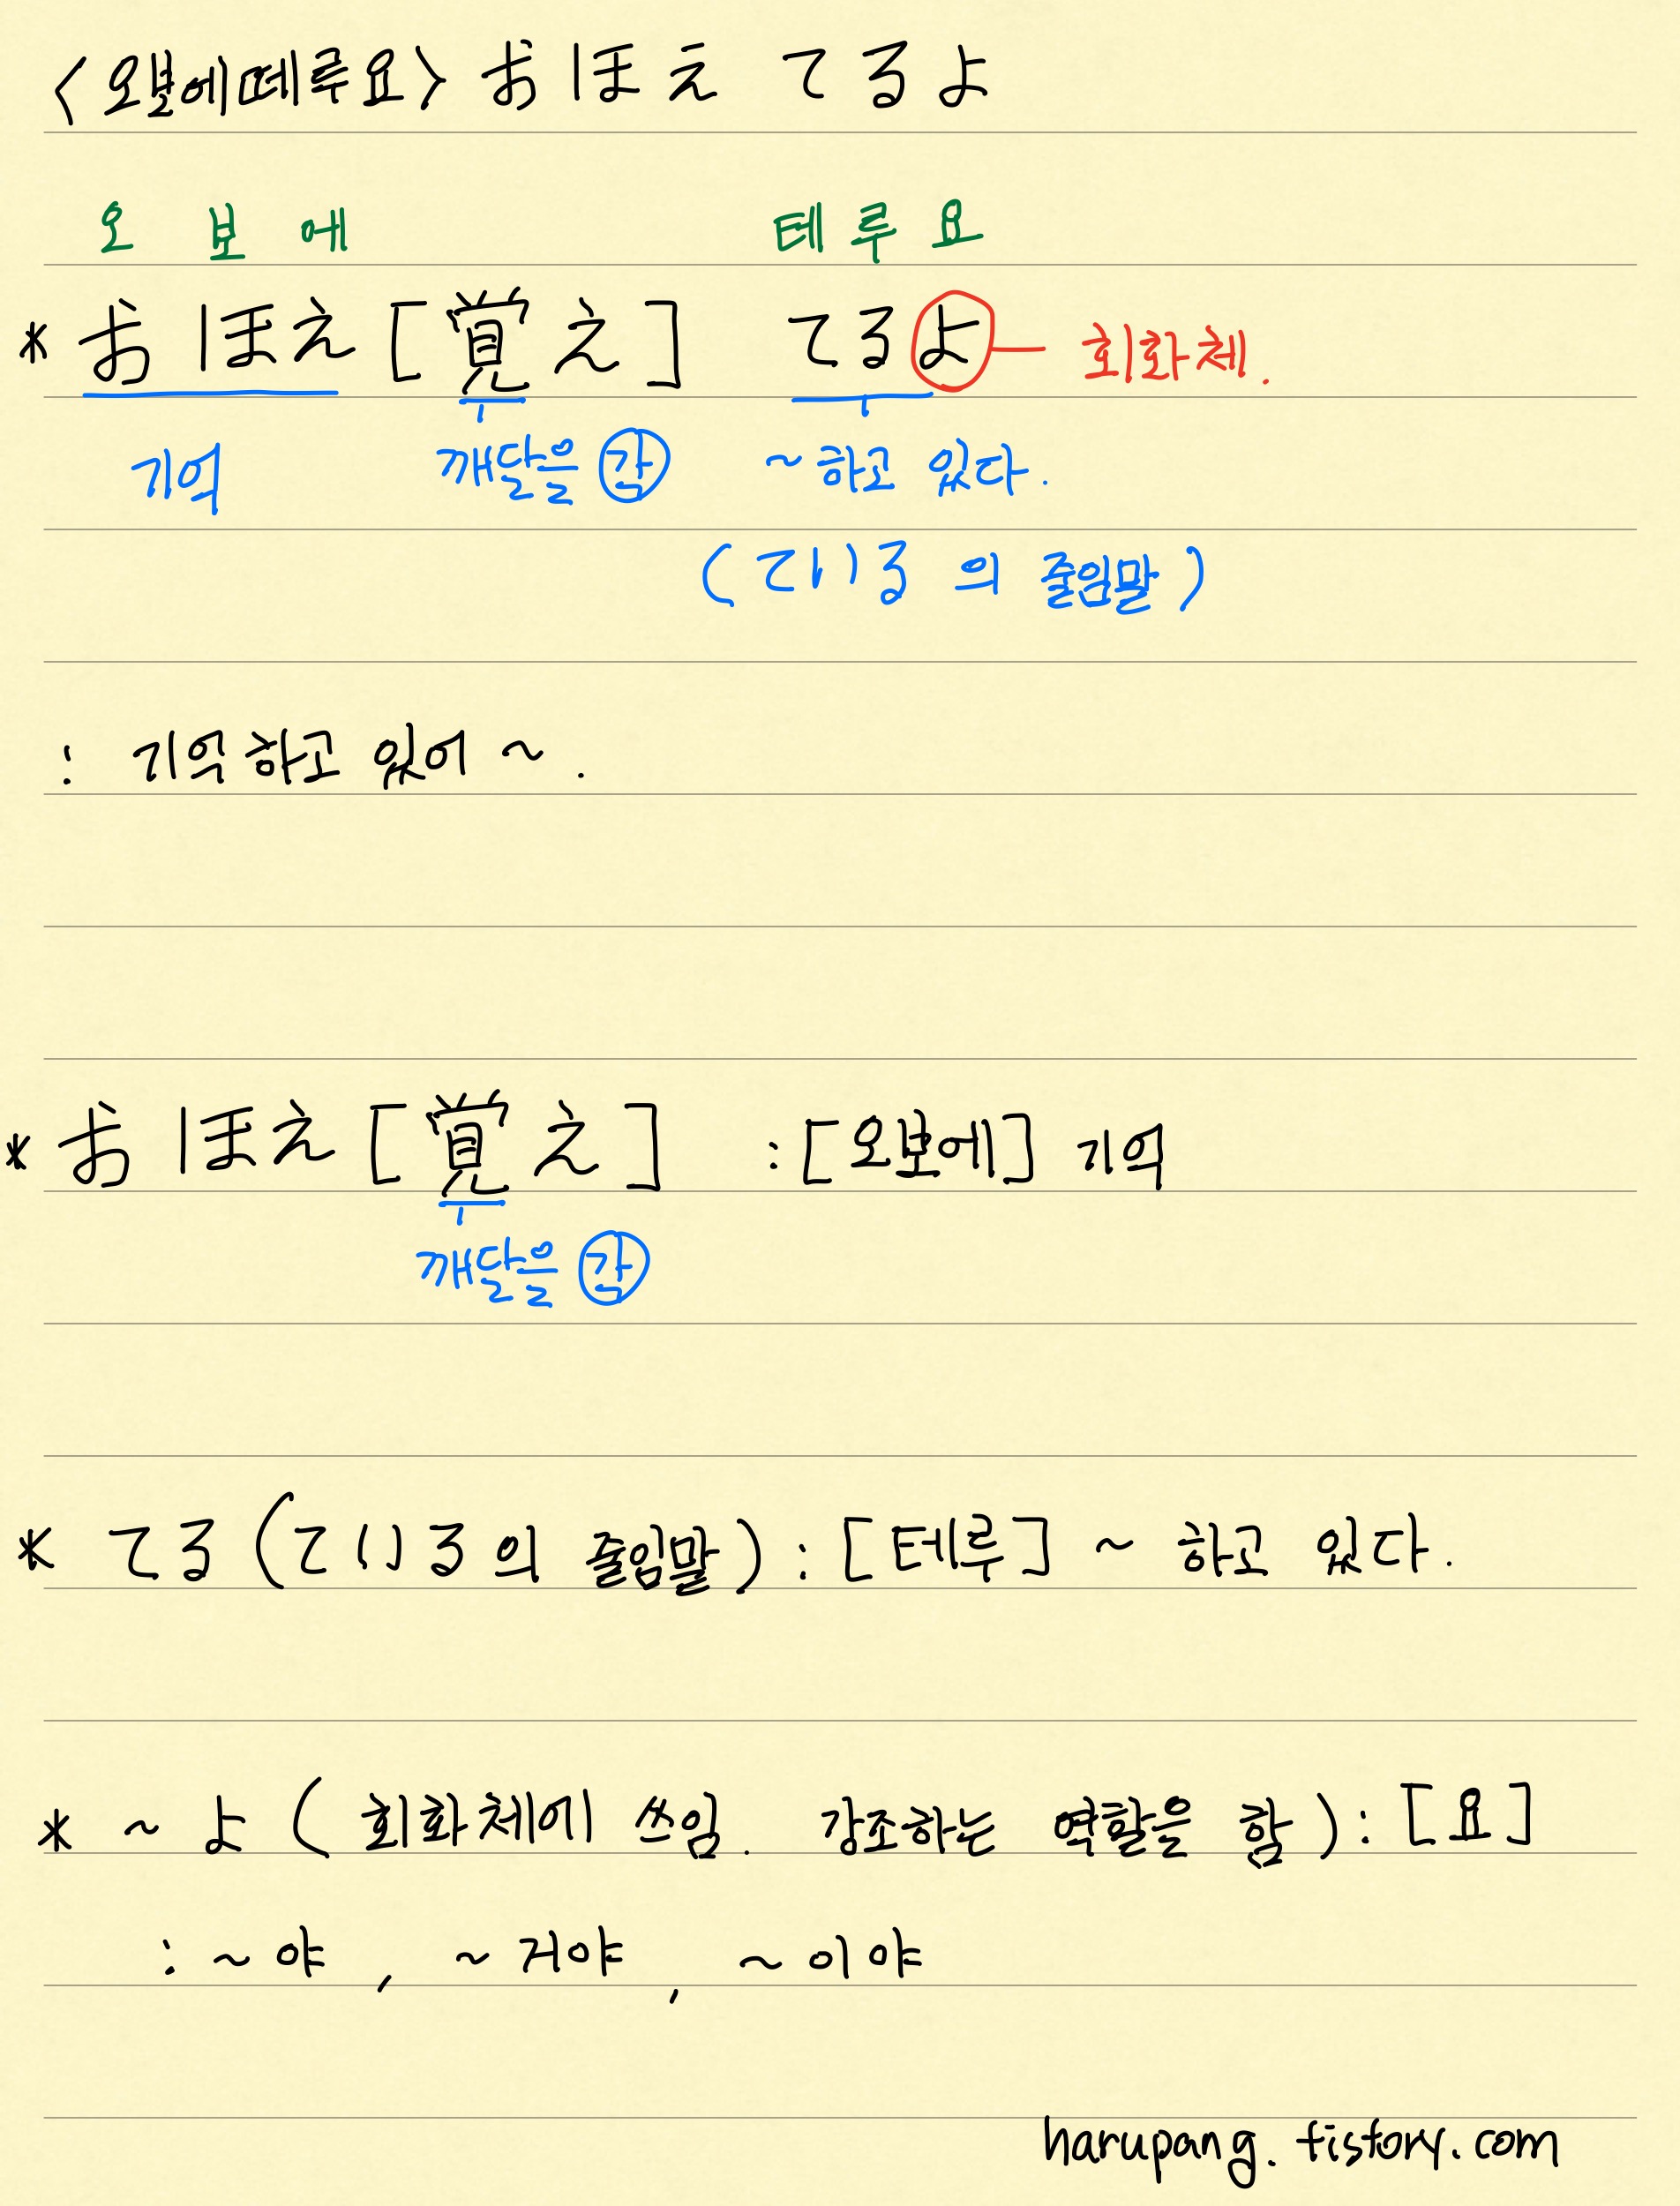 <오보에떼루요> おほえ てるよ
오 보 에 테 루 요
* おほえ [覚え] てるよ 회화체.
기억 깨달을 각 ~하고 있다.
(ている 의 줄임말)
: 기억하고 있어 ~.
* おほえ [覚え] : [오보에] 기억
깨달을 각
* てる (ている 의 줄임말) : [테루] ~ 하고 있다.
* ~ よ ( 회화체에 쓰임. 강조하는 역할을 함 ) : [요]
: ~ 야 , ~ 거야 , ~ 이야
harupang.tistory.com